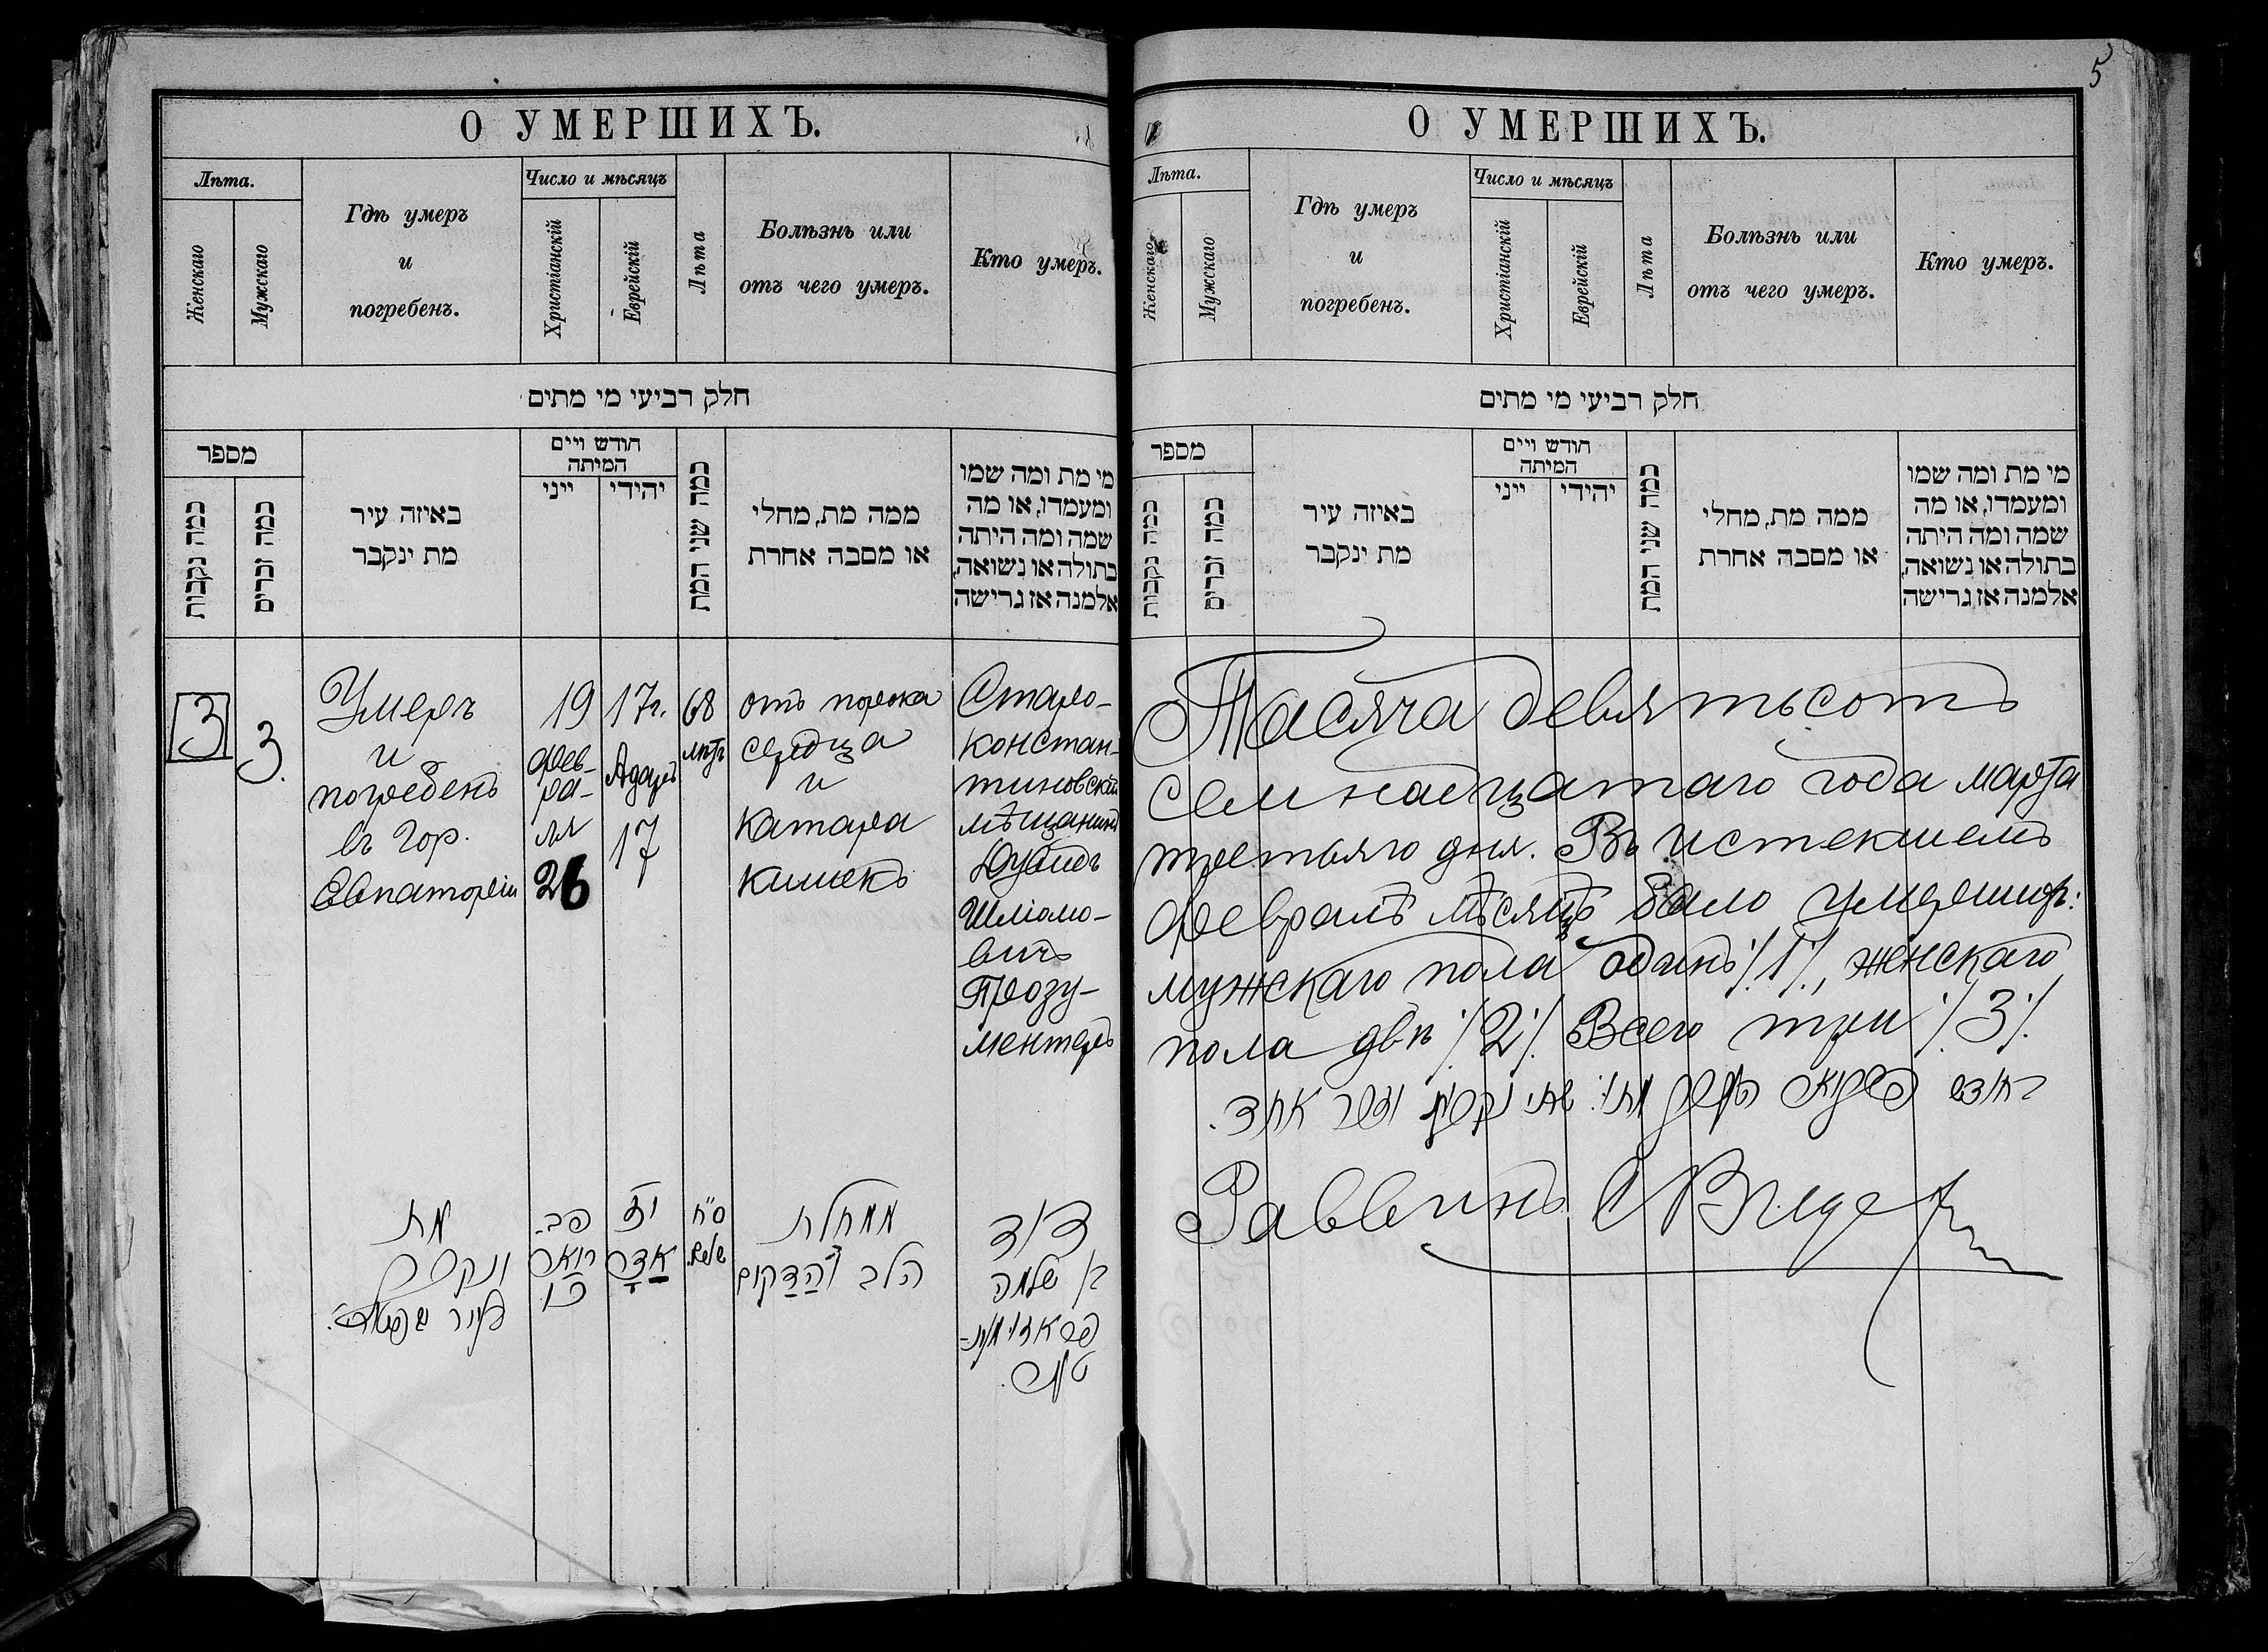 О УМЕРШИХЪ.
Лѣта.
Женскаго
Мужскаго
Гдѣ умеръ
и
погребенъ.
Число и мѣсяцъ
Христіанскій
Еврейскій
Лѣта
Болѣзнь или
отъ чего умеръ.
Кто умеръ.
חלק רביעי מי מתים
מספר
כמה נקבות
כמה זכרים
באיזה עיר
מת ינקבר
חודש ויים
המיתה
ייני
יהידי
כמה שני המת
ממה מת, מחלי
או מסבה אחרת
מי מת ומה שמו
ומעמדו, או מה
שמה ומה היתה
בתולה או נשואה,
אלמנה אז גרישה
3
3.
Умеръ
и
погребенъ
въ гор.
Евпаторіи
19
фев-
ра-
ля
26
17 г.
Адаръ
17
68
лѣтъ
отъ порока
сердца
и
катара
кишекъ
Старо-
констан-
тиновскій
мѣщанинъ
Дувидъ
Шліомо-
вичъ
Прозу-
ментеръ
מת
ונקבר
בעיר
פב-
רואר
כו.
יז
אדר
ס״ח
שנים.
ממחלת
הלב והַדַקום
דוד
בן שלמה
טער.
5
О УМЕРШИХЪ.
Лѣта.
Женскаго
Мужскаго
Гдѣ умеръ
и
погребенъ.
Число и мѣсяцъ
Христіанскій
Еврейскій
Лѣта
Болѣзнь или
отъ чего умеръ.
Кто умеръ.
חלק רביעי מי מתים
מספר
כמה נקבות
כמה זכרים
באיזה עיר
מת ינקבר
חודש ויים
המיתה
ייני
יהידי
כמה שני המת
ממה מת, מחלי
או מסבה אחרת
מי מת ומה שמו
ומעמדו, או מה
שמה ומה היתה
בתולה או נשואה,
אלמנה אז גרישה
Тысяча девятьсотъ
семнадцатаго года марта
третьяго дня. Въ истекшемъ
февралѣ мѣсяцѣ было умерших:
мужскаго пола одинъ /1/, женскаго
пола двѣ /2/. Всего три /3/.
בחודש פברואר העבר מתו: שתי נקבות וזכר אחד.
Раввинъ